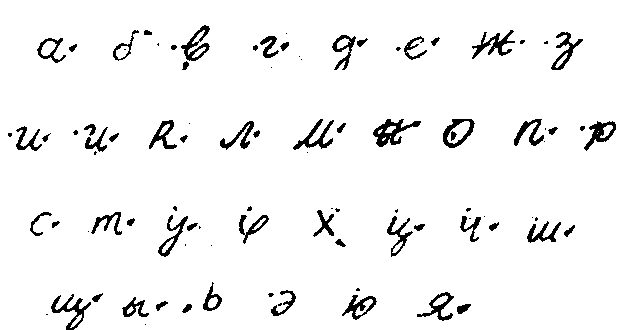 а б в г д е ж з
и й к л м н о п р
с т у ф х ц ч ш
щ ы ь э ю я